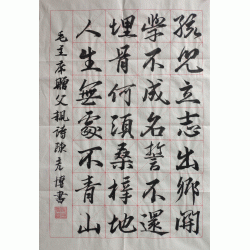 孩兒立志出鄉関
學不成名誓不還
埋骨何須桑梓地
人生無處不青山
毛主席贈父親詩陳老博書